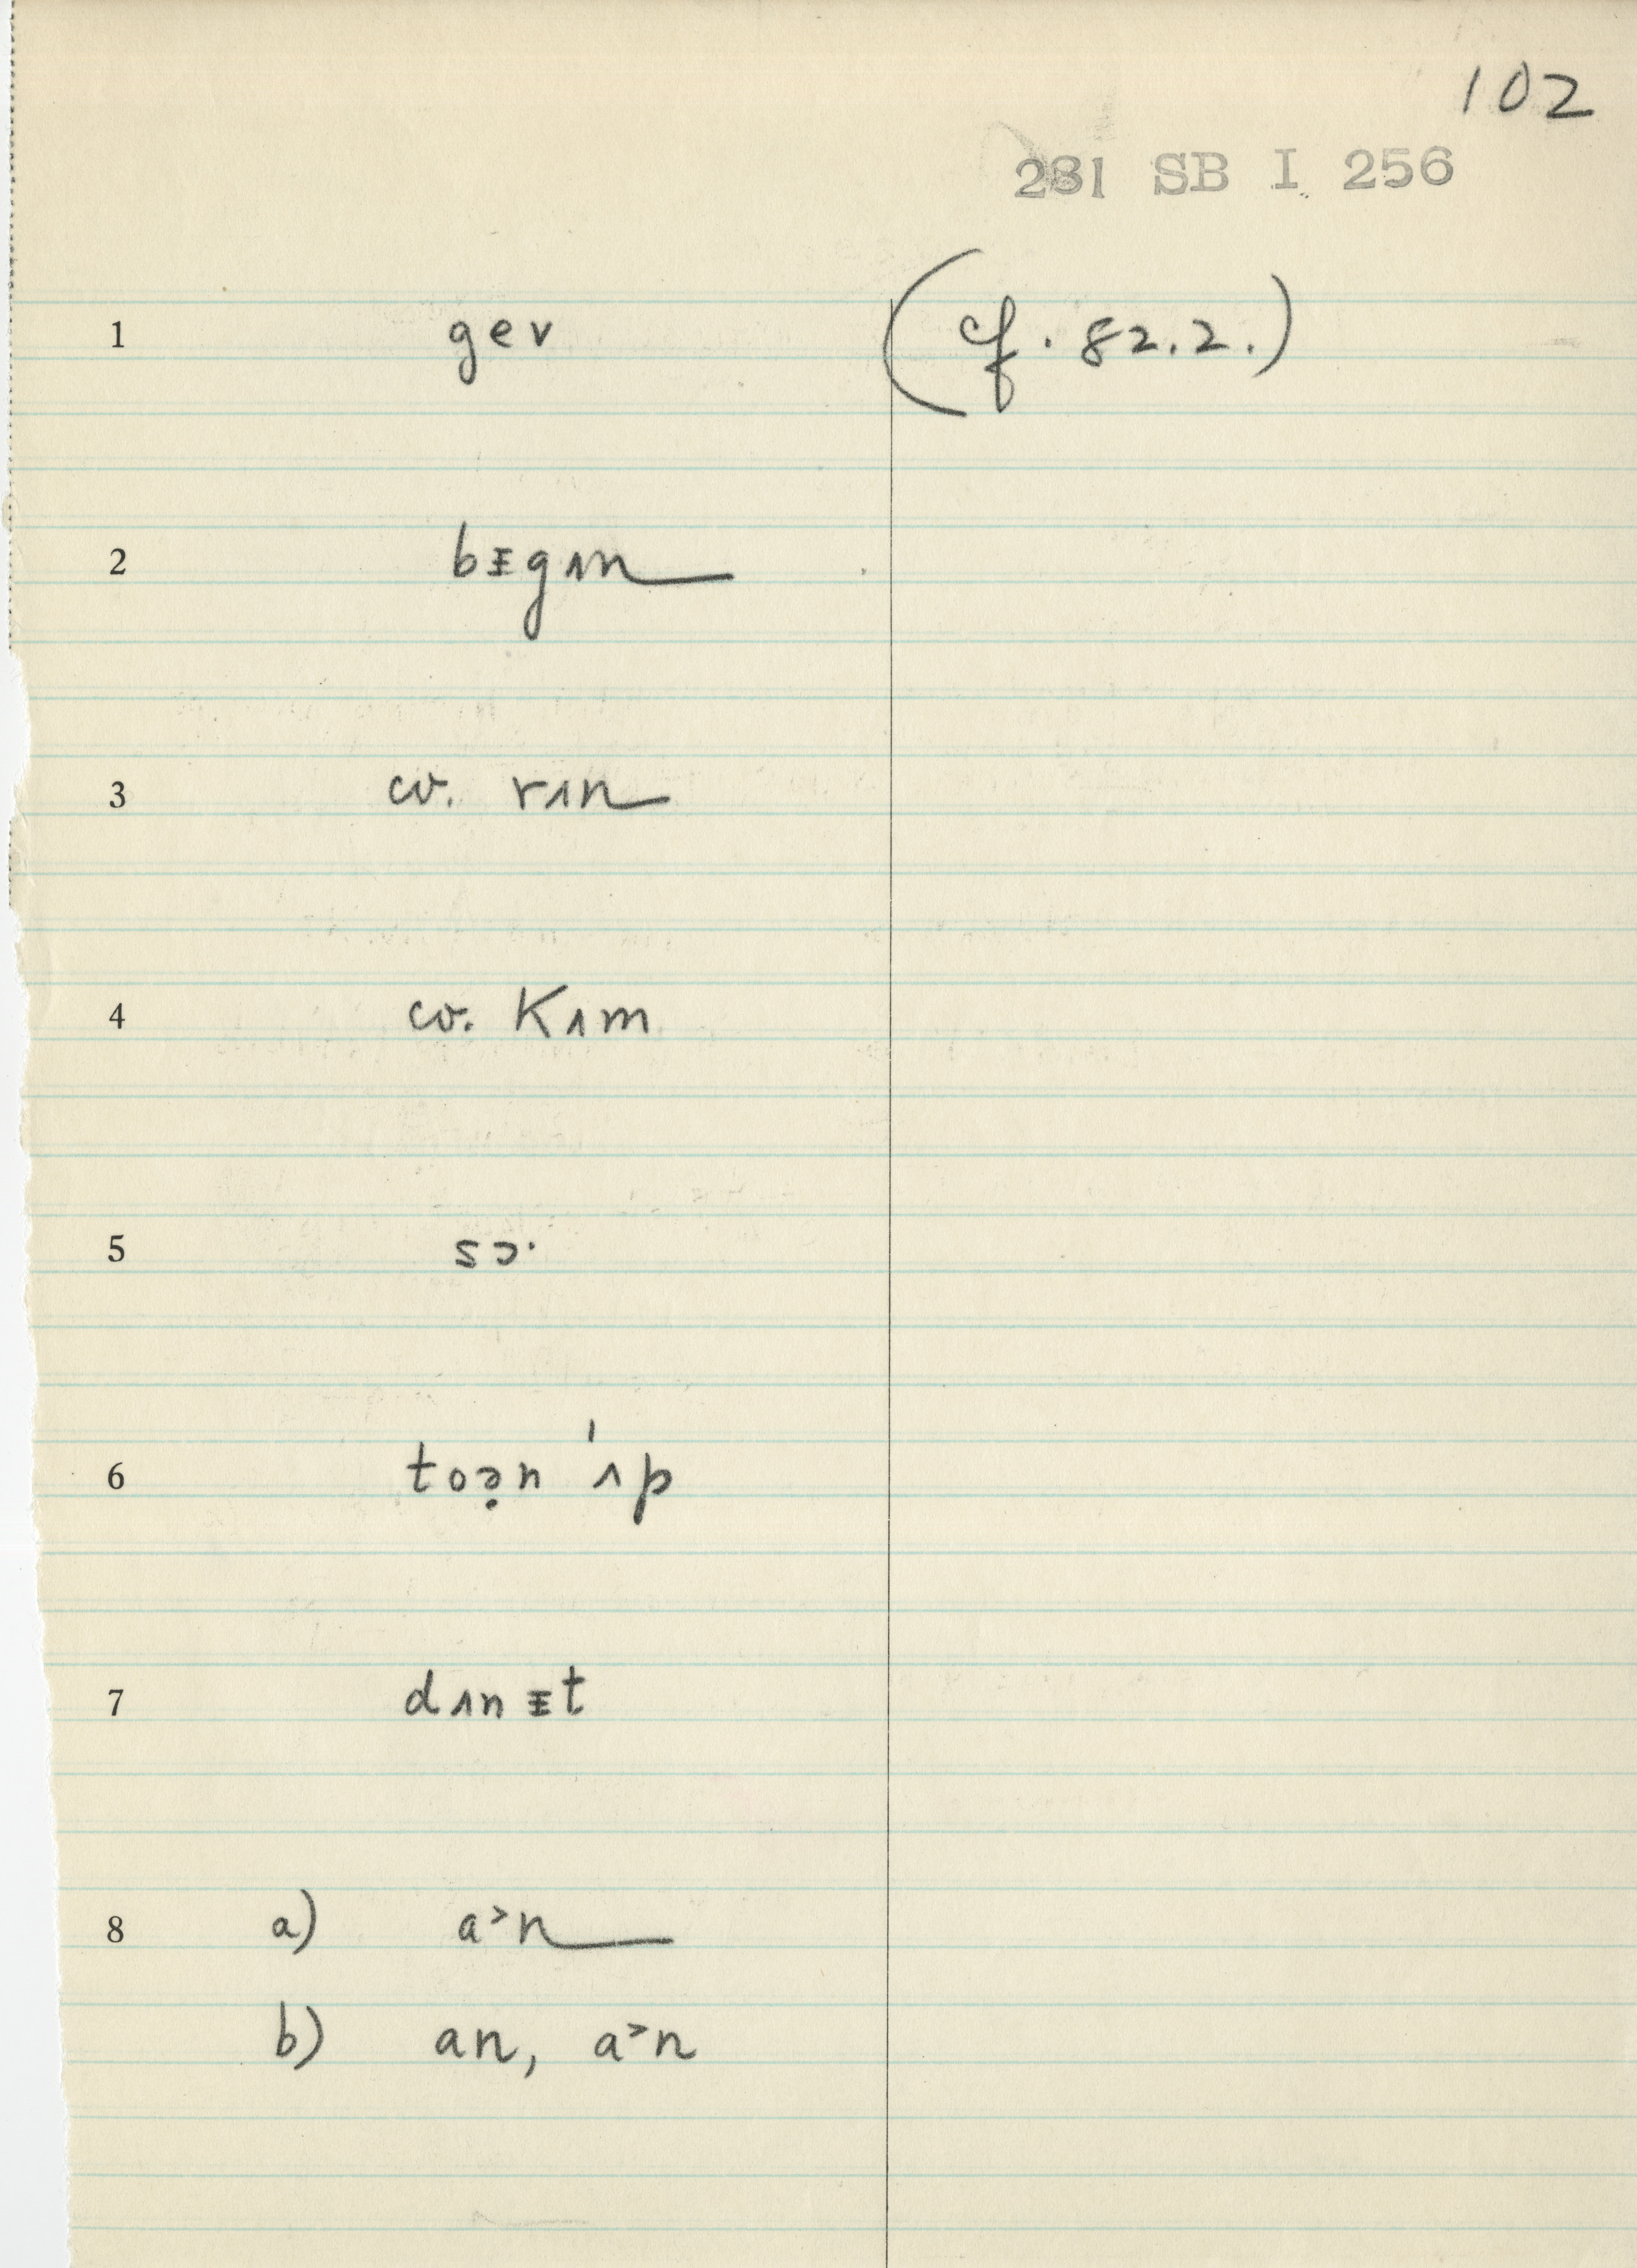 102
281 SB I 256
1 gev (cf. 82.2.)
2 bᵻgʌn
3 cv. rʌn
4 cv. kʌm
5 sɔ·
6 toə̣n ˈʌp
7 dʌnᵻt
8 a) a˃n
b) an, a˃n